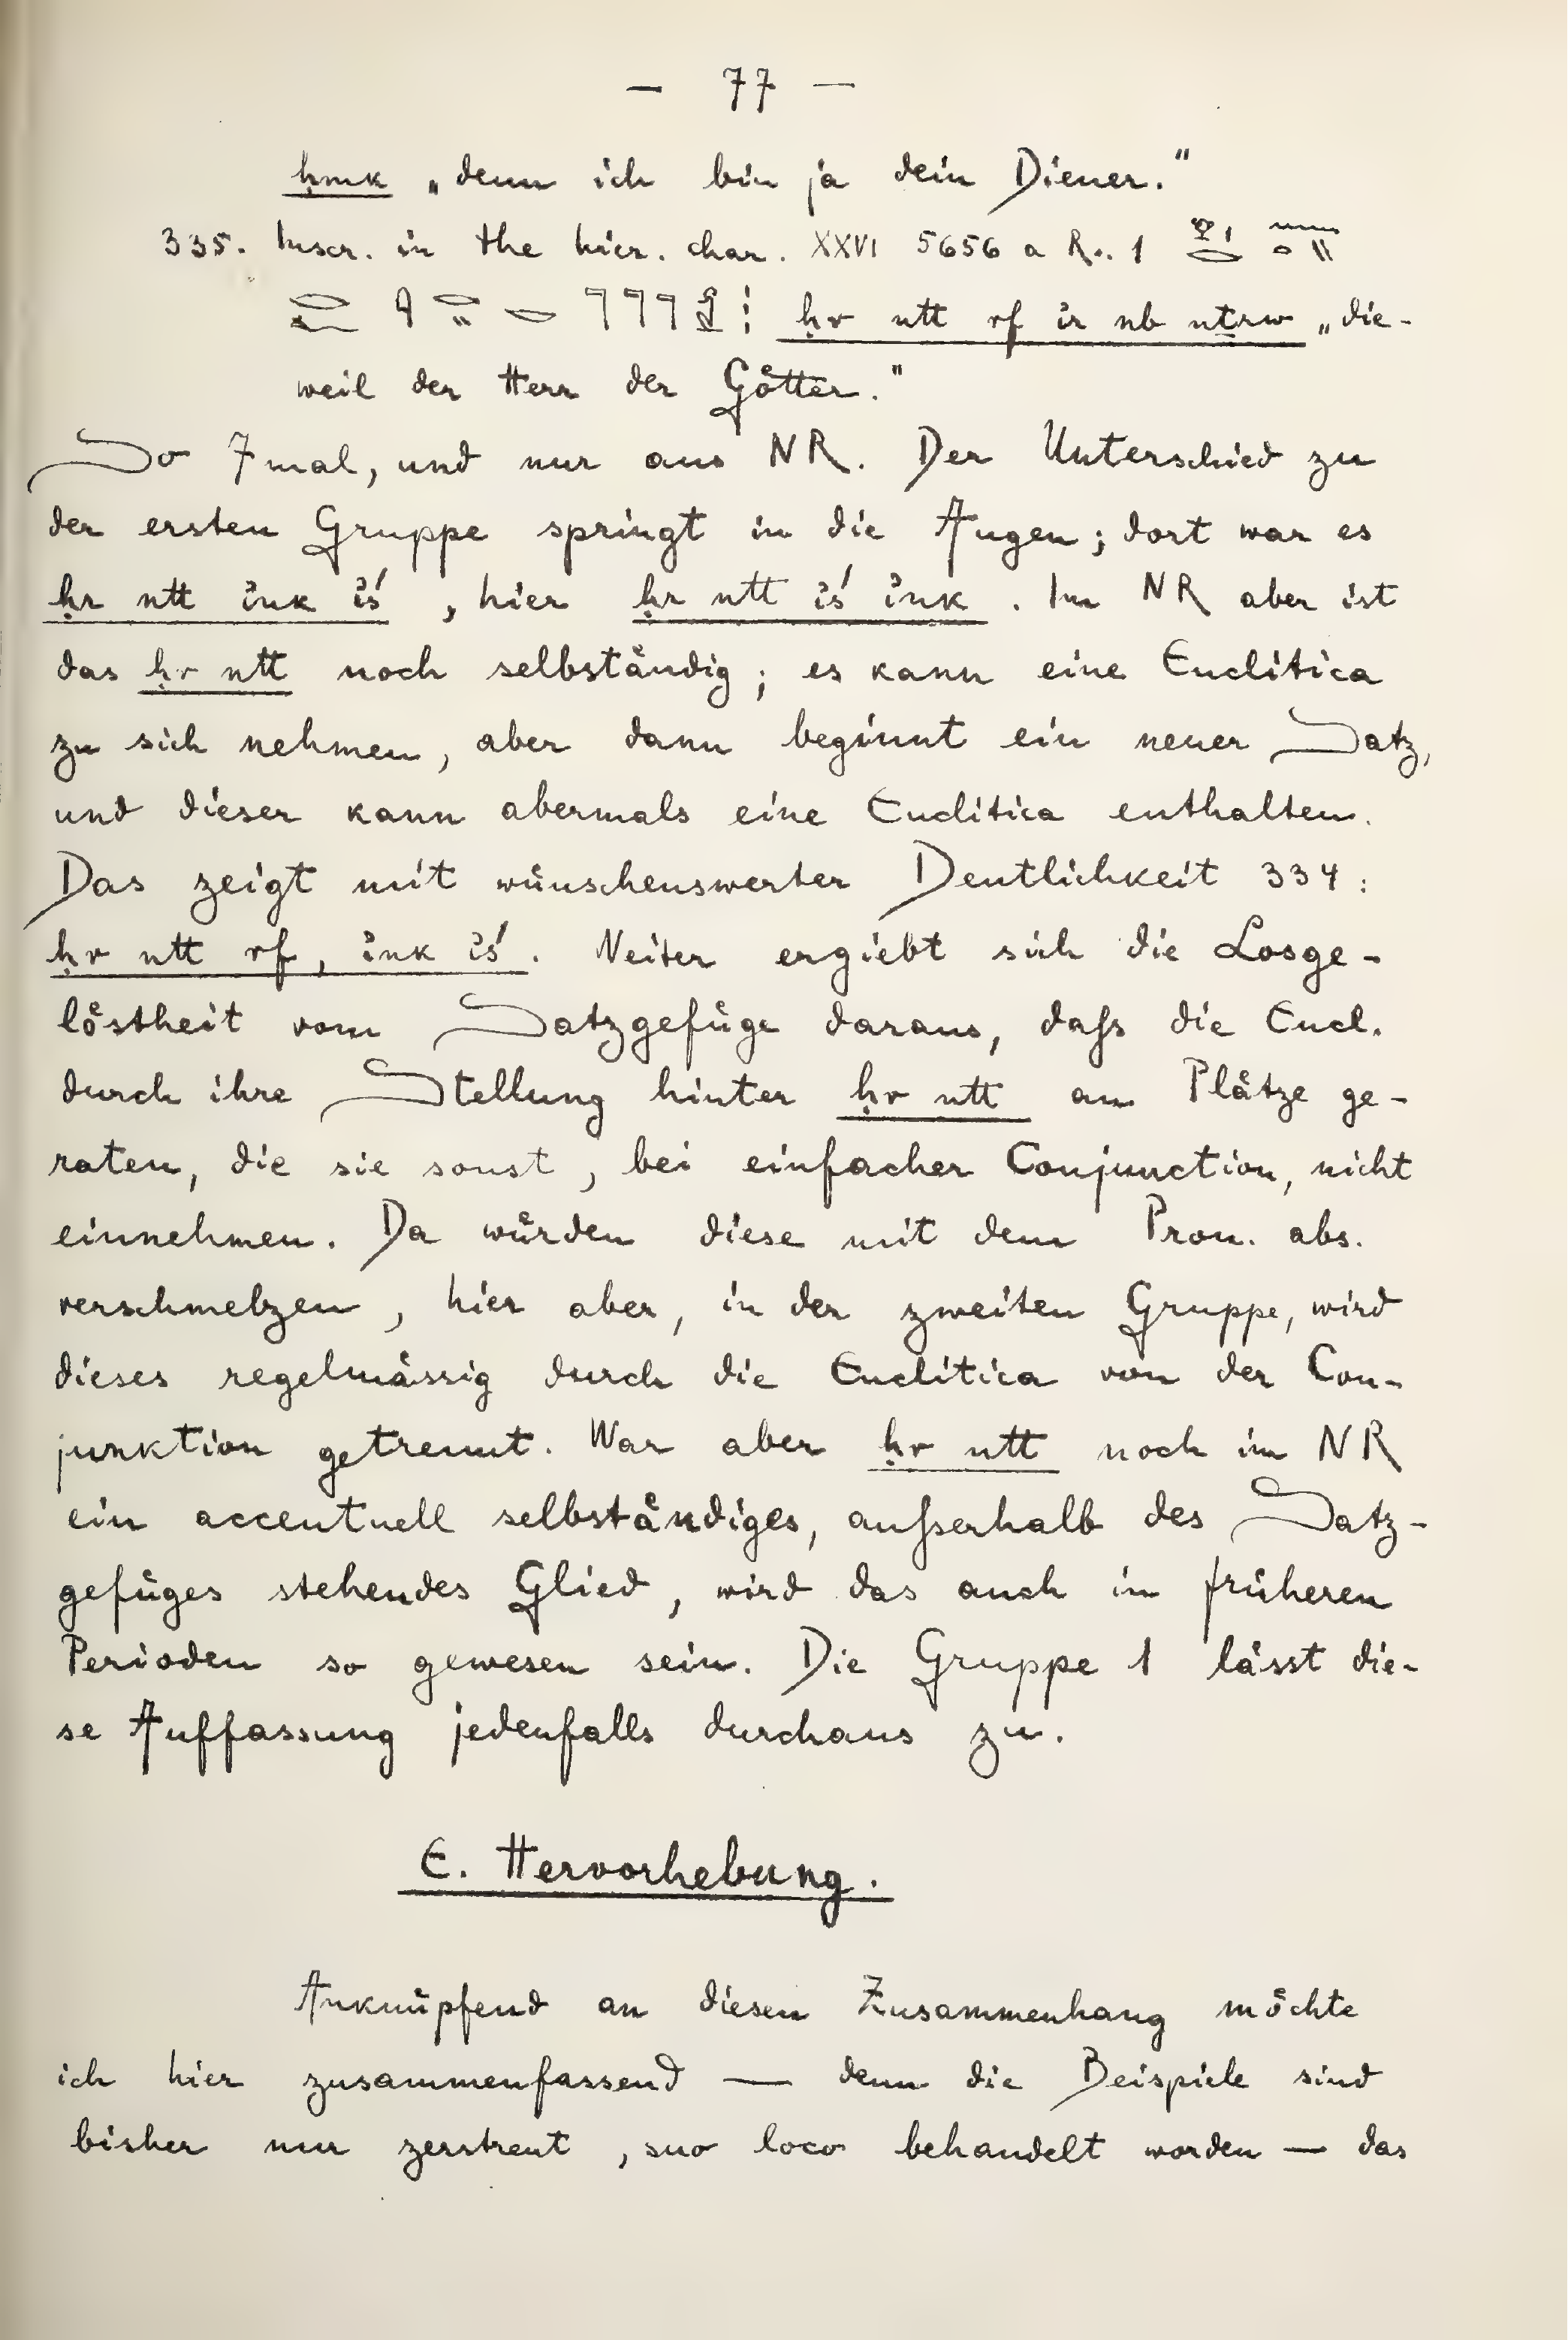 — 77 —
ḥmk „denn ich bin ja dein Diener."
335. Inscr. in the hier. char. XXVI 5656 a R. 1
ḥr ntt rf ir nb nṯrw „die-
weil der Herr der Götter."
So 7mal, und nur aus NR. Der Unterschied zu
der ersten Gruppe springt in die Augen; dort war es
ḥr ntt ı͗nk ı͗ś, hier ḥr ntt ı͗ś ı͗nk. Im NR aber ist
das ḥr ntt noch selbständig; es kann eine Enclitica
zu sich nehmen, aber dann beginnt ein neuer Satz,
und dieser kann abermals eine Enclitica enthalten.
Das zeigt mit wünschenswerter Deutlichkeit 334:
ḥr ntt rf, ı͗nk ı͗ś. Weiter ergiebt sich die Losge-
löstheit vom Satzgefüge daraus, daſs die Encl.
durch ihre Stellung hinter ḥr ntt an Plätze ge-
raten, die sie sonst, bei einfacher Conjunction, nicht
einnehmen. Da würden diese mit dem Pron. abs.
verschmelzen, hier aber, in der zweiten Gruppe, wird
dieses regelmässig durch die Enclitica von der Con-
junktion getrennt. War aber ḥr ntt noch im NR
ein accentuell selbständiges, auſserhalb des Satz-
gefüges stehendes Glied, wird das auch in früheren
Perioden so gewesen sein. Die Gruppe 1 lässt die-
se Auffassung jedenfalls durchaus zu.
E. Hervorhebung.
Anknüpfend an diesen Zusammenhang möchte
ich hier zusammenfassend — denn die Beispiele sind
bisher nur zerstreut, suo loco behandelt worden — das